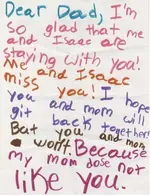 Dear Dad, I'm
so glad that me
and Isaac are
staying with you!
Me and Isaac
miss you! I hope
you and mom will
git back together!
But you and mom
won't Because
my mom dose not
like you.